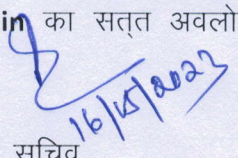 in का सतत अवलो
16/05/2023
सचिव